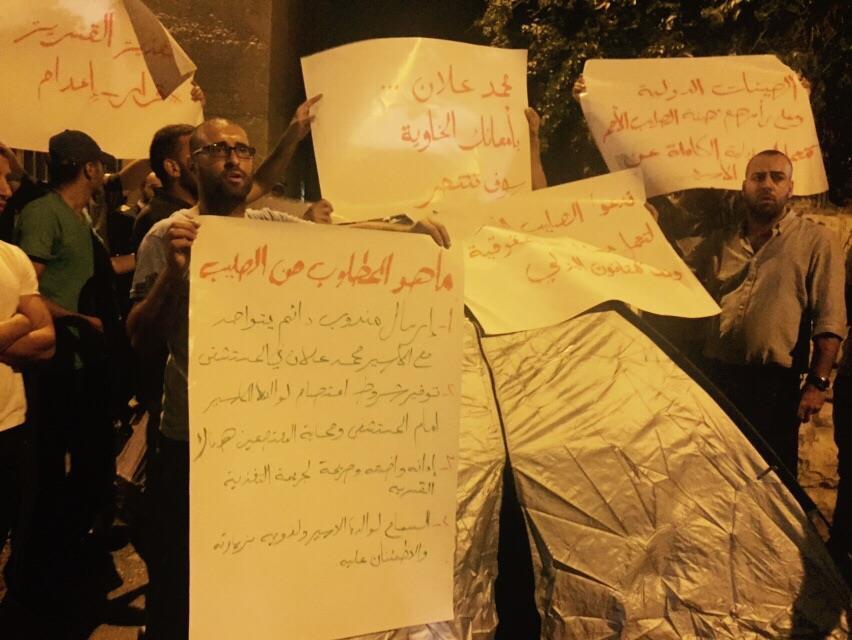 التغذية القسرية
قرار إعدام
محمد علان ...
بأمعائك الخاوية
سوف تنتصر
الهيئات الدولية
وعلى رأسهم هيئة الصليب الأحمر
الكاملة عن
الصليب
الدولي
ما هو المطلوب من الصليب
١- إرسال مندوب دائم يتواجد
مع الأسير محمد علان في المستشفى
٢- توفير شروط اعتصام لوالدة الأسير
امام المستشفى وحماية المعتصمين هنالك
٣- إدانة واضحة وصريحة لجريمة التغذية
القسرية
٤- السماح لوالدة الاسير ولذويه بزيارته
والاطمئنان عليه